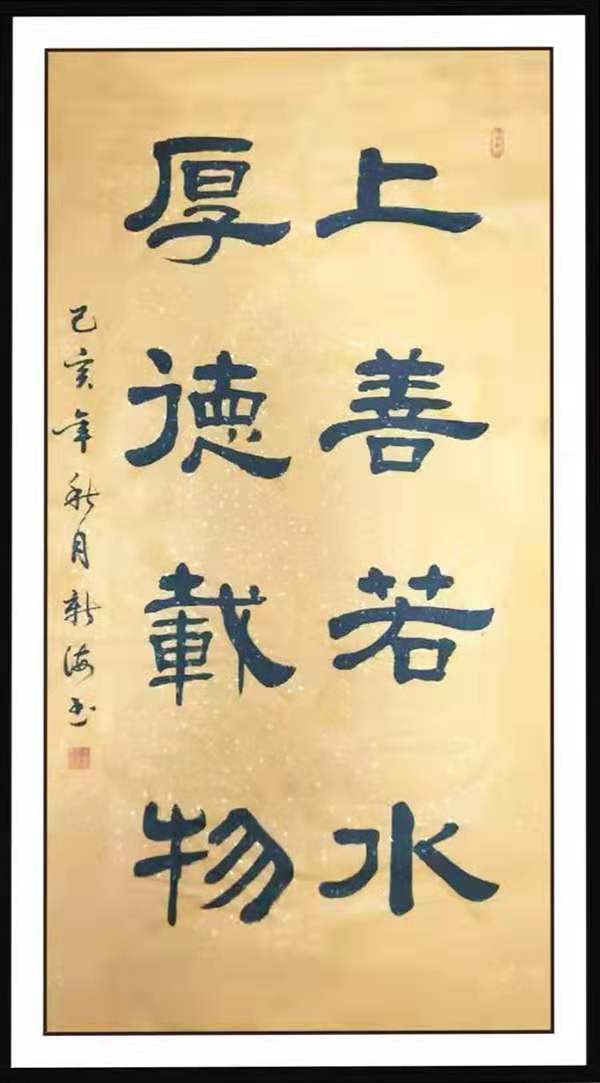 上善若水
厚德載物
己亥年秋月新海书